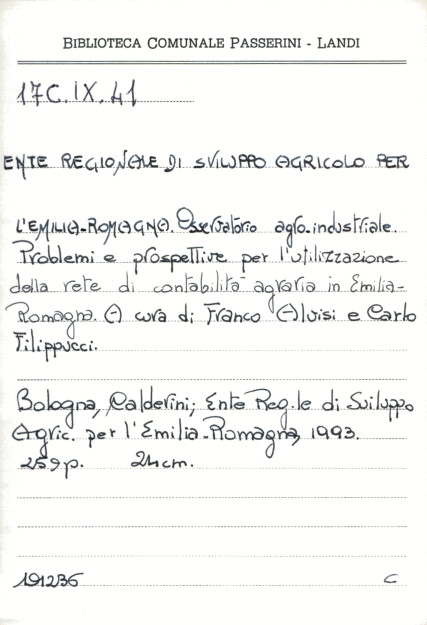 BIBLIOTECA COMUNALE PASSERINI - LANDI
17C.IX.41
ENTE REGIONALE DI SVILUPPO AGRICOLO PER
L'EMILIA-ROMAGNA. Osservatorio agro-industriale.
Problemi e prospettive per l'utilizzazione
della rete di contabilità agraria in Emilia-
Romagna. A cura di Franco Aluisi e Carlo
Filippucci.
Bologna, Calderini; Ente Reg.le di Sviluppo
Agric. per l'Emilia-Romagna, 1993.
259p. 24cm.
191236 C